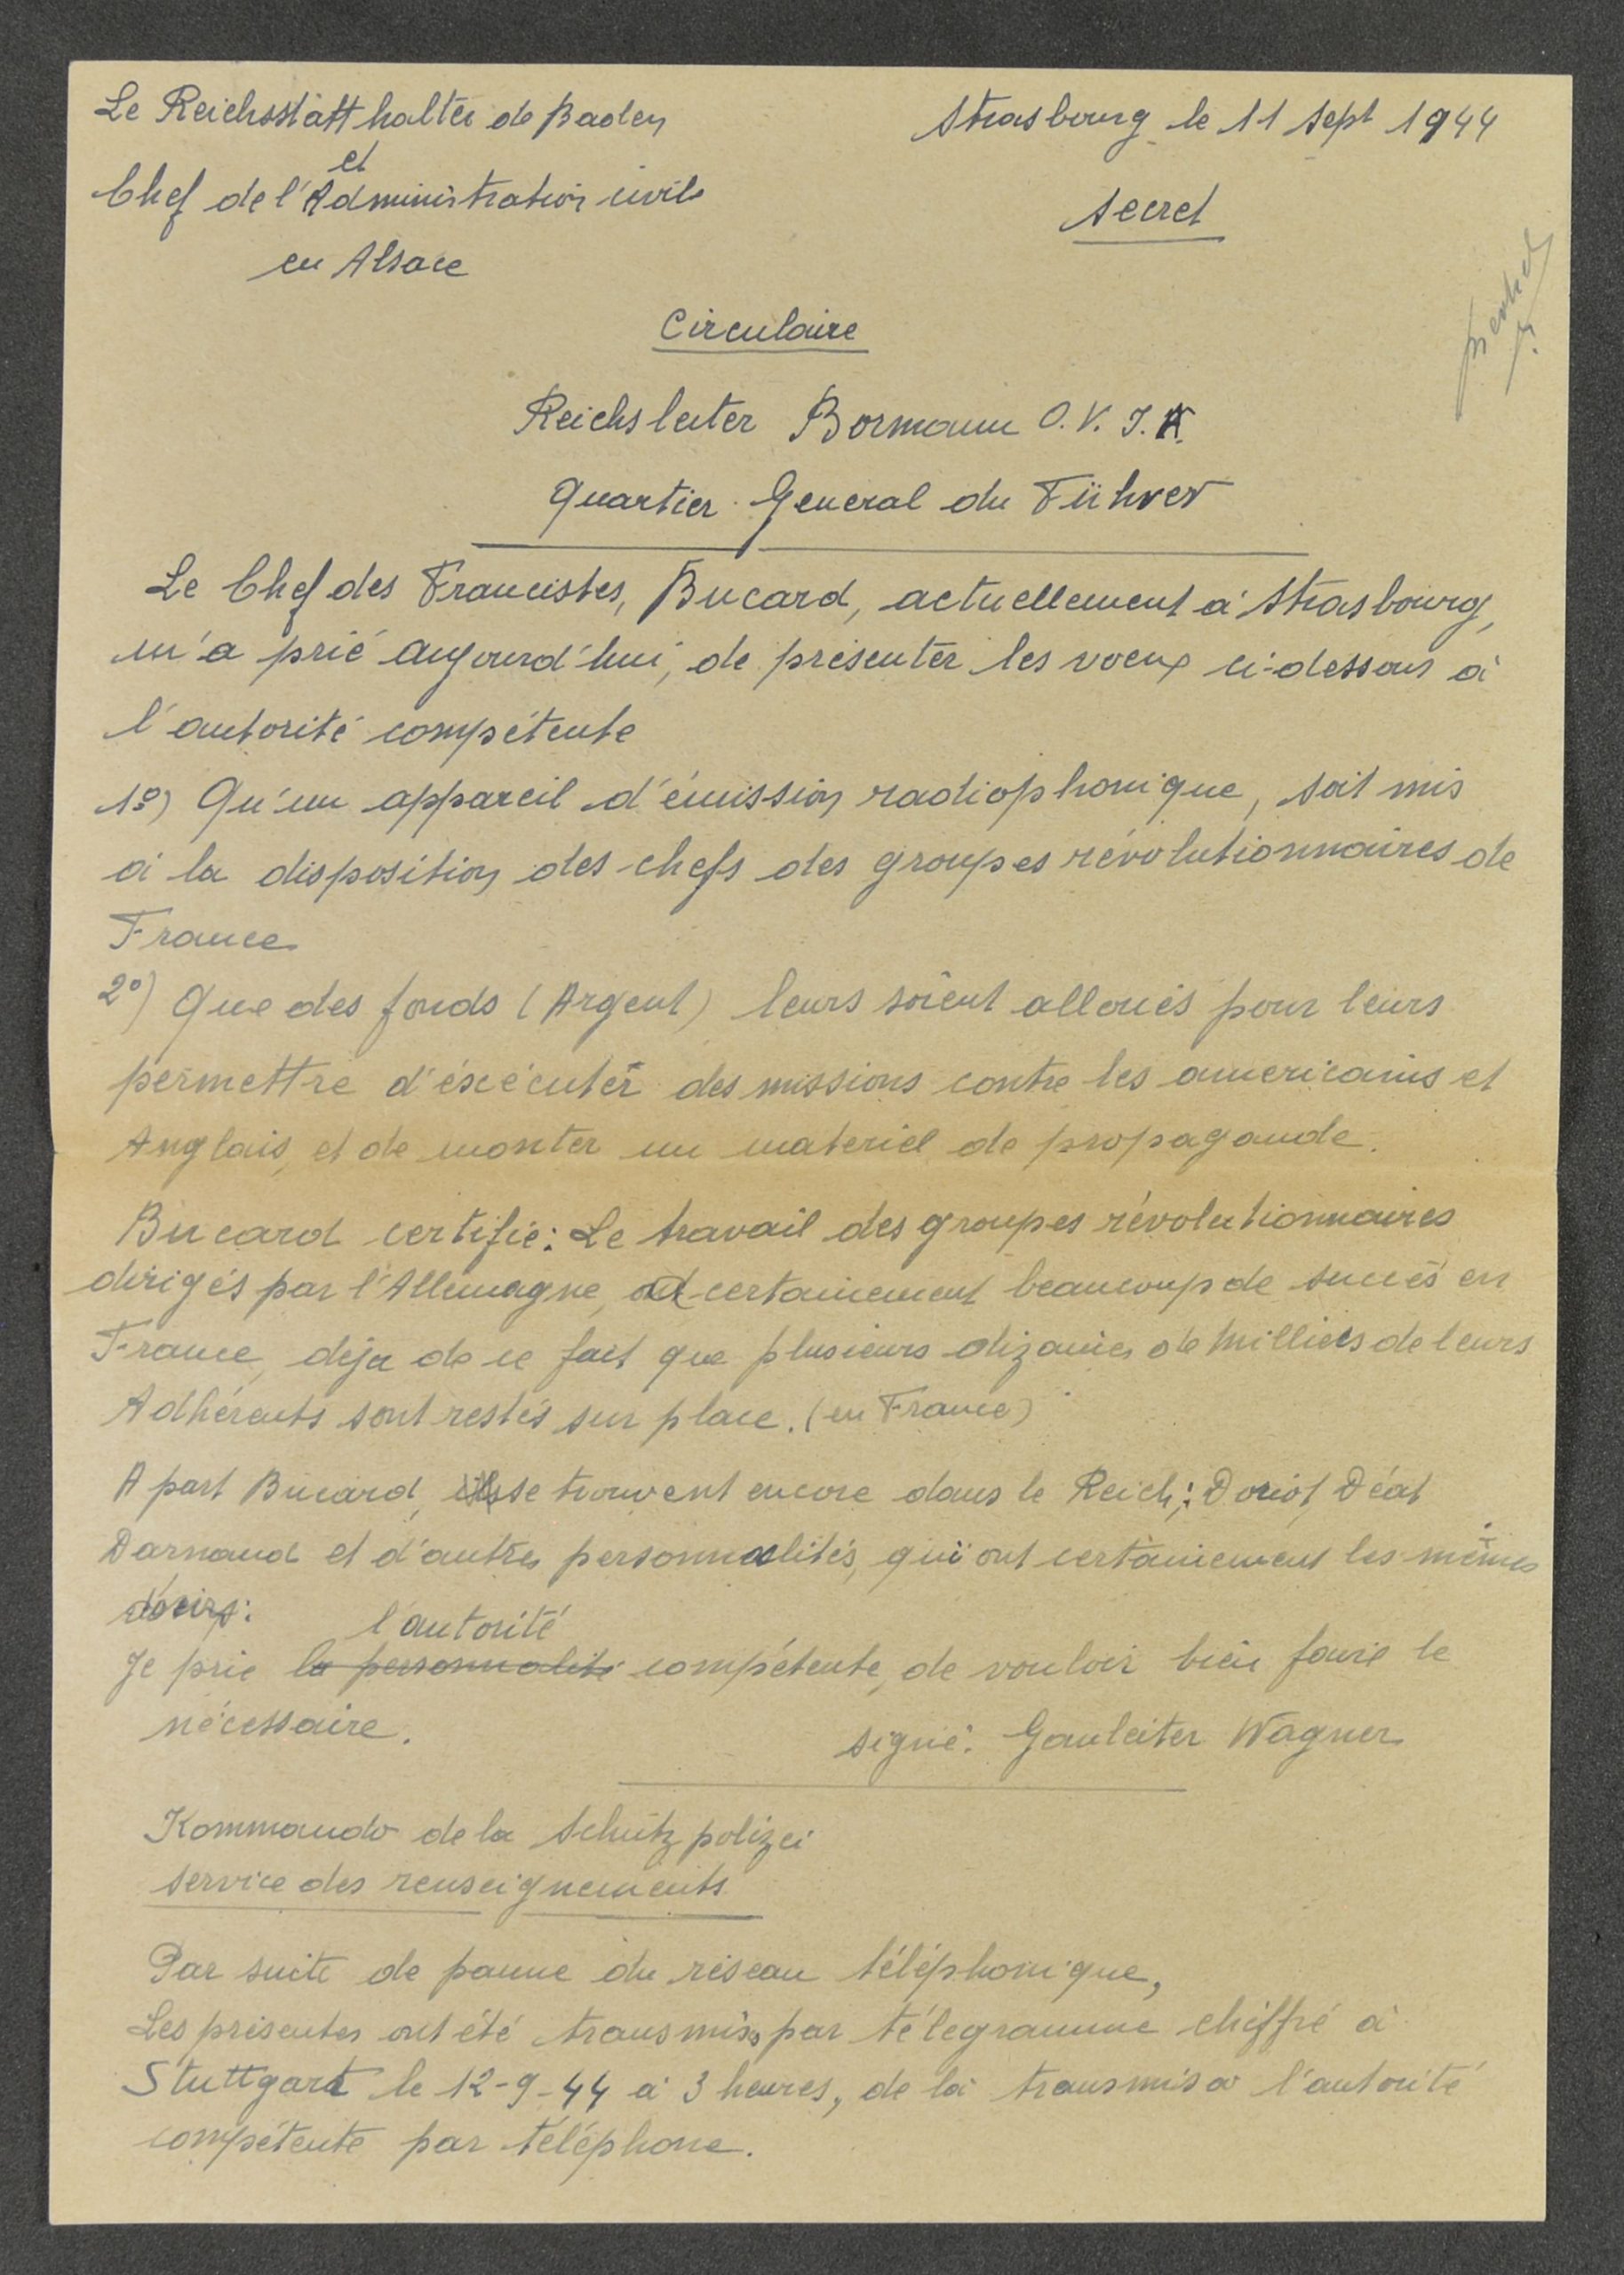 Le Reichsstatthalter de Baden
et
Chef de l'Administration civile
en Alsace
Strasbourg le 11 Sept 1944
Secret
Circulaire
Reichsleiter Bormann O.V.I.A.
Quartier General du Führer
Le Chef des Francistes, Bucard, actuellement à Strasbourg,
m'a prié aujourd'hui, de présenter les voeux ci-dessous à
l'autorité compétente
1º) Qu'un appareil d'émission radiophonique, soit mis
à la disposition des chefs des groupes révolutionnaires de
France
2º) Que des fonds (Argent) leurs soient alloués pour leurs
permettre d'éxécuter des missions contre les americains et
Anglais, et de monter un materiel de propagande.
Bucard certifie: Le travail des groupes révolutionnaires
dirigés par l'Allemagne, certainement beaucoup de succès en
France, deja de ce fait que plusieurs dizaines de Milliers de leurs
Adhérents sont restés sur place. (en France)
A part Bucard, se trouvent encore dans le Reich; Doriot, Déat
Darnand et d'autres personnalités, qui ont certainement les mêmes
désirs:
l'autorité
Je prie la personnalité compétente, de vouloir bien faire le
nécessaire.
signé: Gauleiter Wagner
Kommando de la Schutzpolizei
service des renseignements
Par suite de panne du réseau téléphonique,
Les présentes ont été transmises par télegramme chiffré à
Stuttgart le 12-9-44 à 3 heures, de là transmis à l'autorité
compétente par téléphone.